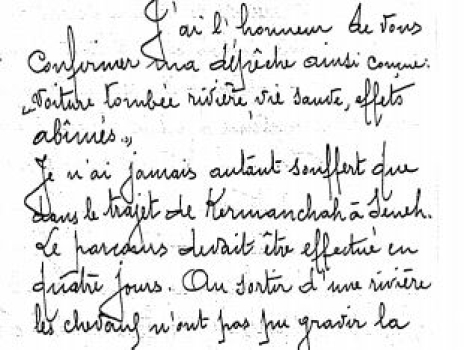 J'ai l'honneur de vous
Confirmer ma dépêche ainsi conçue:
"Voiture tombée rivière, vie sauve, effets
abîmés."
Je n'ai jamais autant souffert que
dans le trajet de Kermanchah à Seneh.
Le parcours devait être effectué en
quatre jours. Au sortir d'une rivière
les chevaux n'ont pas pu gravir la